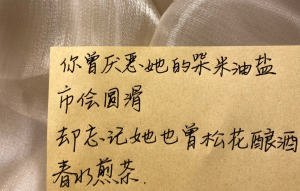 你曾厌恶她的柴米油盐
市侩圆滑
却忘记她也曾松花酿酒
春水煎茶.